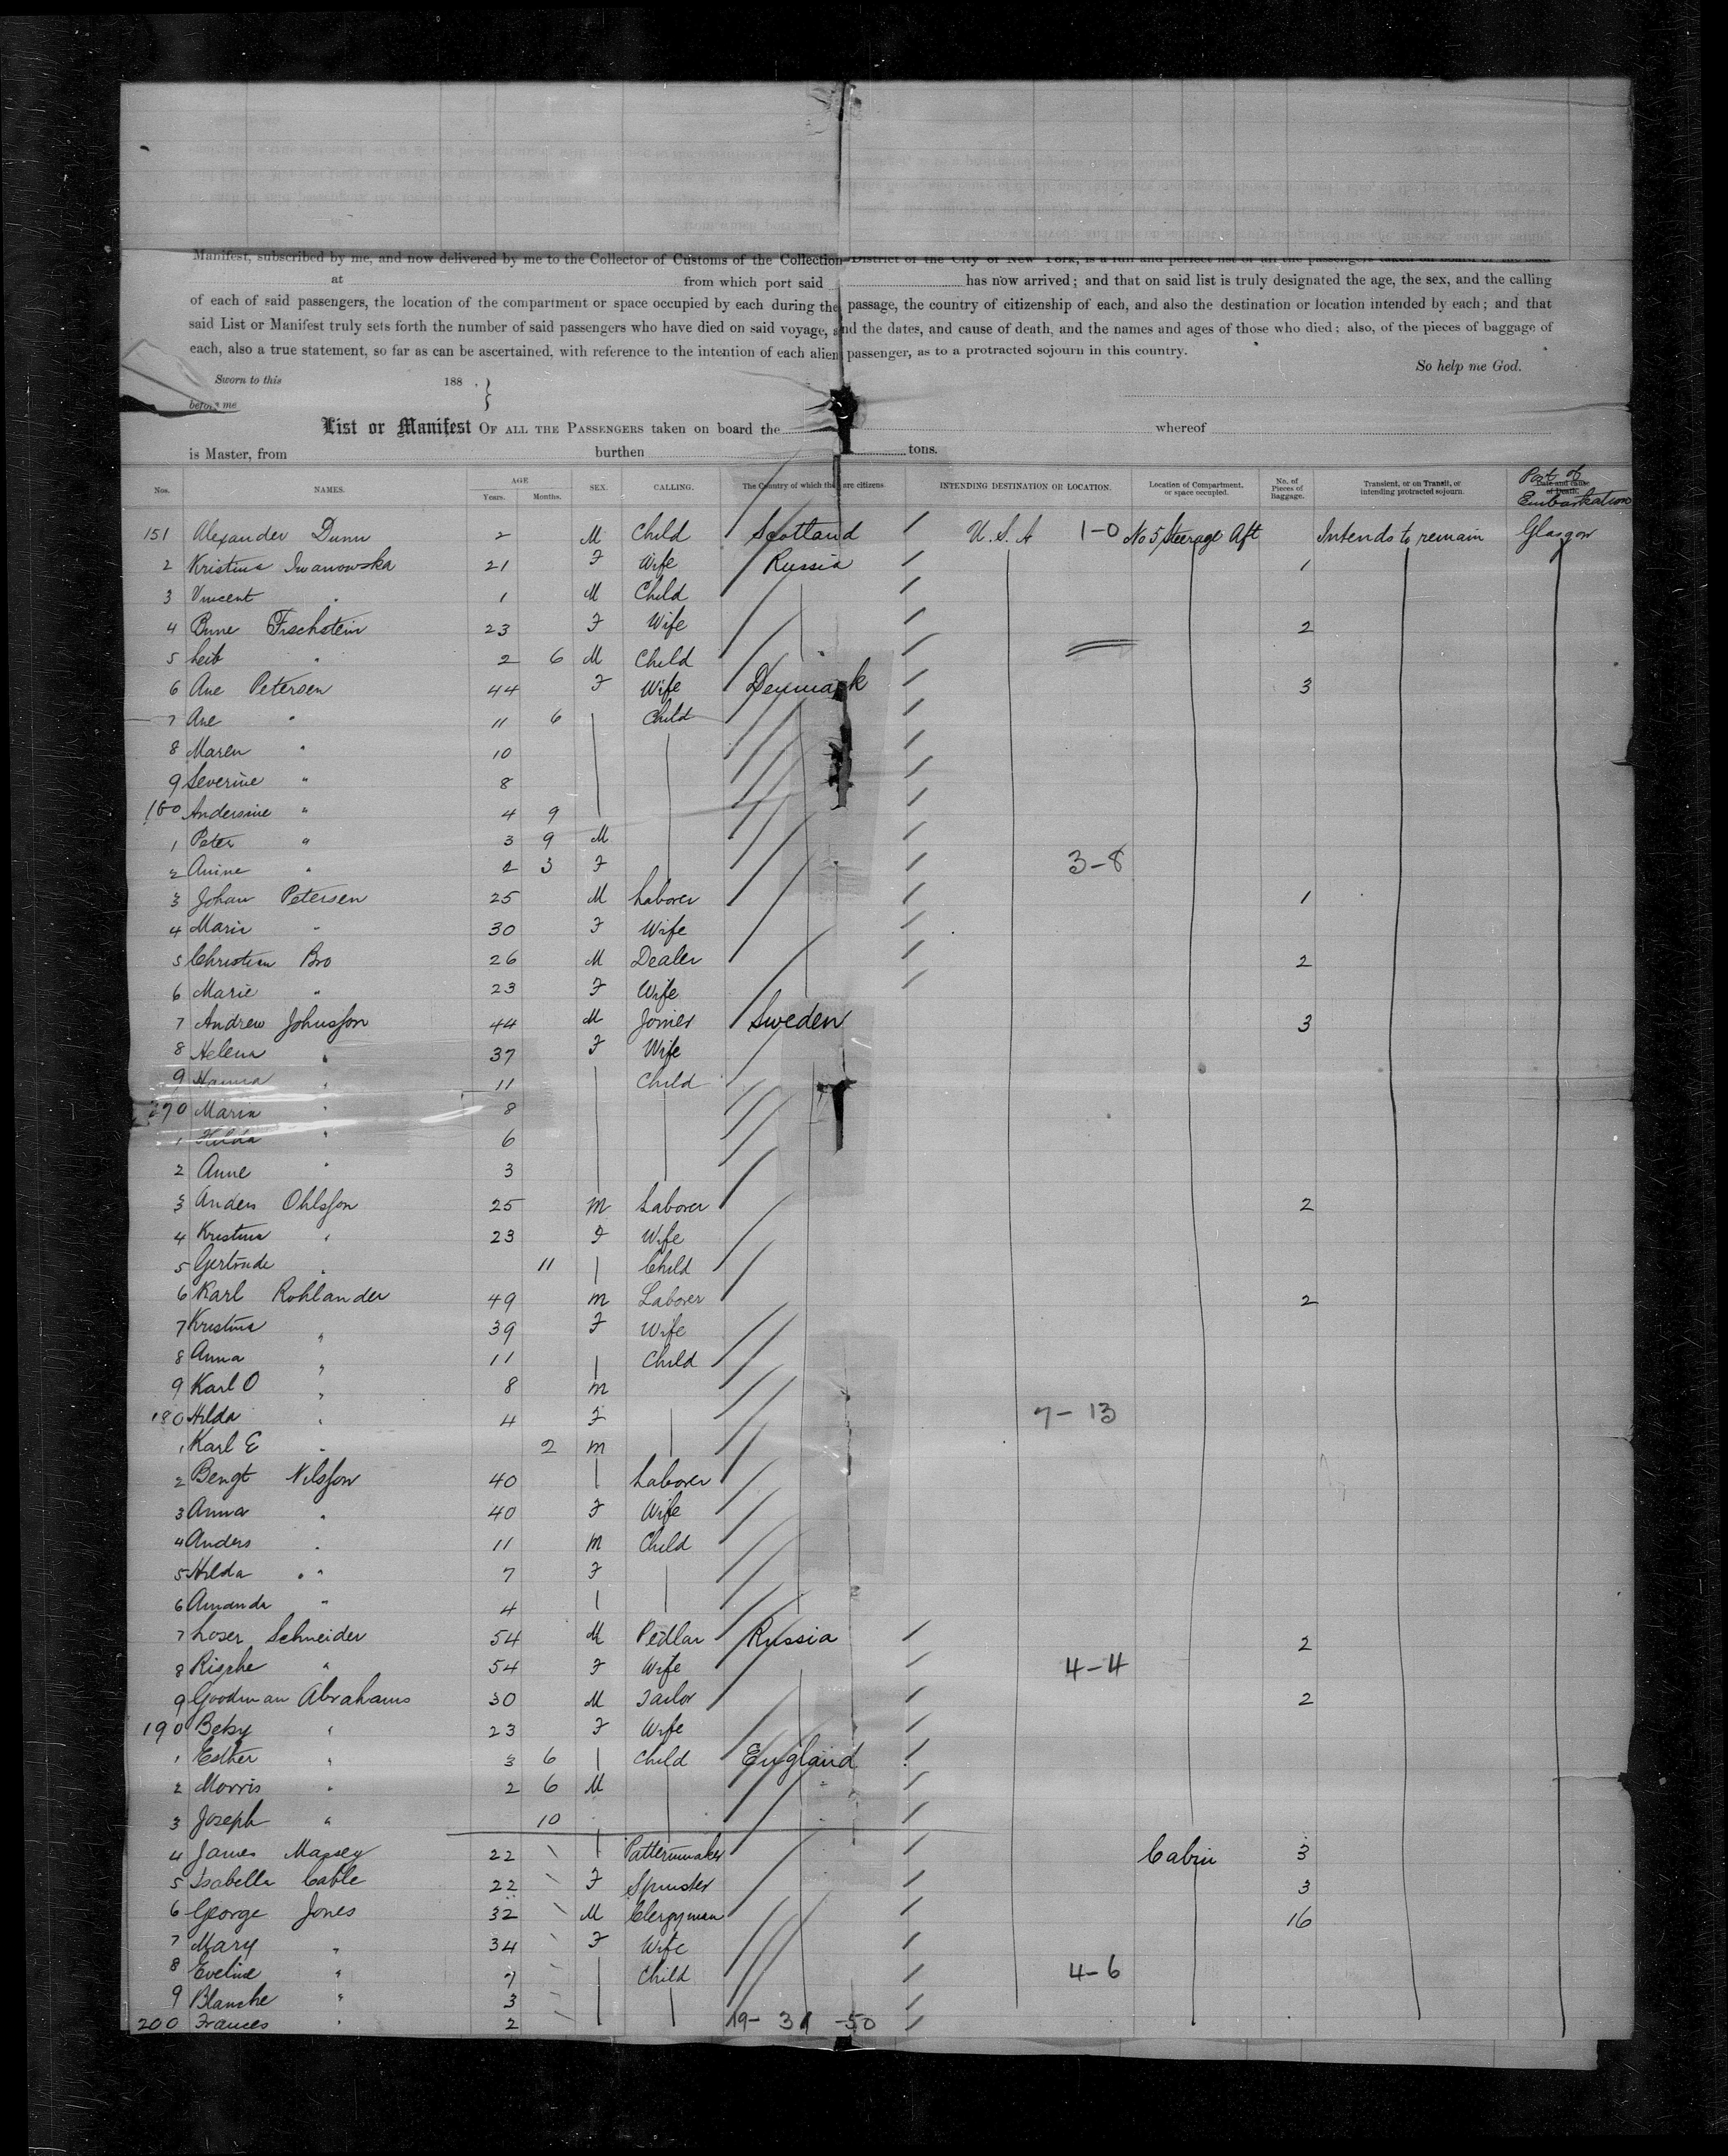 Manifest, subscribed by me, and now delivered by me to the Collector of Customs of the Collection District of the City of New York, is a full and perfect list of all the passengers taken on board of the said
at from which port said has now arrived; and that on said list is truly designated the age, the sex, and the calling
of each of said passengers, the location of the compartment or space occupied by each during the passage, the country of citizenship of each, and also the destination or location intended by each; and that
said List or Manifest truly sets forth the number of said passengers who have died on said voyage, and the dates, and cause of death, and the names and ages of those who died; also, of the pieces of baggage of
each, also a true statement, so far as can be ascertained, with reference to the intention of each alien passenger, as to a protracted sojourn in this country.
So help me God.
Sworn to this 188 .
before me
List or Manifest OF ALL THE PASSENGERS taken on board the whereof
is Master, from burthen tons.
Nos. NAMES. AGE Years. Months. SEX. CALLING. The Country of which they are citizens. INTENDING DESTINATION OR LOCATION. Location of Compartment, or space occupied. No. of Pieces of Baggage. Transient, or on Transit, or intending protracted sojourn. Date and cause of Death. Port of Embarkation
151 Alexander Dunn 2 M Child Scotland U.S.A 1-0 No 5 Steerage Aft Intends to remain Glasgow
2 Kristina Iwanowska 21 F Wife Russia 1
3 Vincent " 1 M Child
4 Bune Fischstein 23 F Wife 2
5 Leib " 2 6 M Child
6 Ane Petersen 44 F Wife Denmark 3
7 Ane " 11 6 Child
8 Maren " 10
9 Severine " 8
160 Andersine " 4 9
1 Peter " 3 9 M
2 Anine " 3 F 3-8
3 Johan Petersen 25 M Laborer 1
4 Marie " 30 F Wife
5 Christian Bro 26 M Dealer 2
6 Marie " 23 F Wife
7 Andrew Johnsson 44 M Joiner Sweden 3
8 Helena " 37 F Wife
9 Hanna " 11 Child
170 Maria " 8
1 Hilda " 6
2 Anne " 3
3 Anders Ohlsson 25 M Laborer 2
4 Kristina " 23 F Wife
5 Gertrude " 11 Child
6 Karl Rohlander 49 M Laborer 2
7 Kristina " 39 F Wife
8 Anna " 11 Child
9 Karl O " 8 M
180 Hilda " 4 F 7-13
1 Karl E " 2 M
2 Bengt Nilsson 40 Laborer
3 Anna " 40 F Wife
4 Anders " 11 M Child
5 Hilda " 7 F
6 Amanda " 4
7 Loser Schneider 54 M Pedlar Russia 2
8 Rische " 54 F Wife 4-4
9 Goodman Abrahams 30 M Tailor 2
190 Beky " 23 F Wife
1 Esther " 3 6 Child England
2 Morris " 2 6 M
3 Joseph " 10
4 James Massey 22 Patternmaker Cabin 3
5 Isabella Cable 22 F Spinster 3
6 George Jones 32 M Clergyman 16
7 Mary " 34 F Wife
8 Eveline " 7 Child 4-6
9 Blanche " 3
200 Frances " 2 19- 31 -50